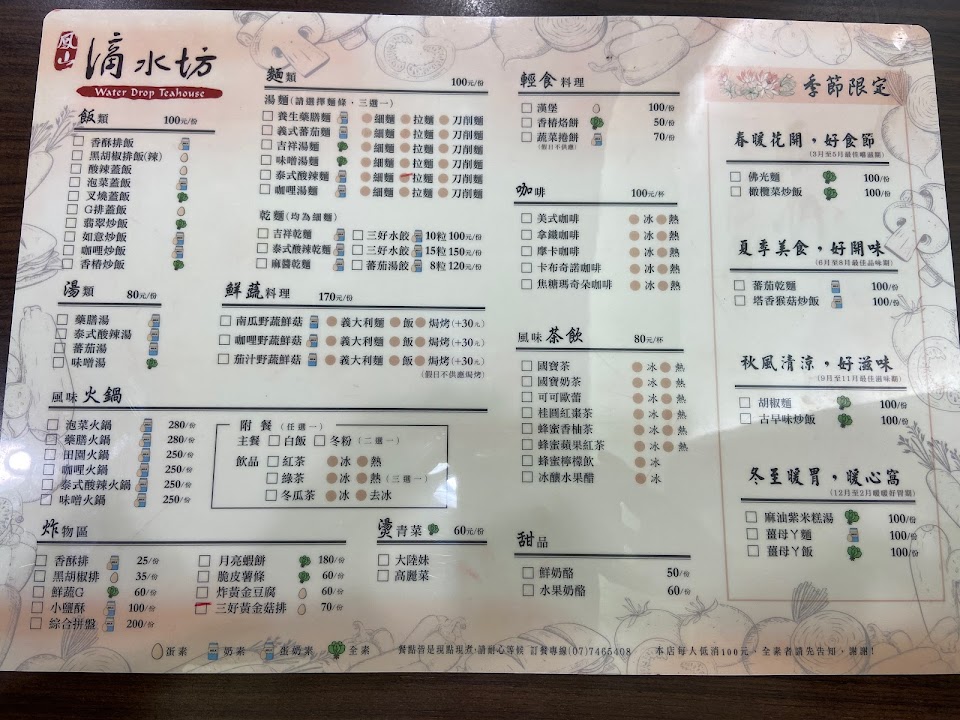 鳳山 滴水坊
Water Drop Teahouse
飯類 100元/份
香酥排飯
黑胡椒排飯(辣)
酸辣蓋飯
泡菜蓋飯
叉燒蓋飯
G排蓋飯
翡翠炒飯
如意炒飯
咖哩炒飯
香椿炒飯
湯類 80元/份
藥膳湯
泰式酸辣湯
蕃茄湯
味噌湯
麵類 100元/份
湯麵(請選擇麵條,三選一)
養生藥膳麵 細麵 拉麵 刀削麵
義式蕃茄麵 細麵 拉麵 刀削麵
吉祥湯麵 細麵 拉麵 刀削麵
味噌湯麵 細麵 拉麵 刀削麵
泰式酸辣麵 細麵 拉麵 刀削麵
咖哩湯麵 細麵 拉麵 刀削麵
乾麵(均為細麵)
吉祥乾麵 三好水餃 10粒 100元/份
泰式酸辣乾麵 三好水餃 15粒 150元/份
麻醬乾麵 蕃茄湯餃 8粒 120元/份
鮮蔬料理 170元/份
南瓜野蔬鮮菇 義大利麵 飯 焗烤(+30元)
咖哩野蔬鮮菇 義大利麵 飯 焗烤(+30元)
茄汁野蔬鮮菇 義大利麵 飯 焗烤(+30元)
(假日不供應焗烤)
風味火鍋
泡菜火鍋 280/份
藥膳火鍋 280/份
田園火鍋 250/份
咖哩火鍋 250/份
泰式酸辣火鍋 250/份
味噌火鍋 250/份
附餐(任選一)
主餐 白飯 冬粉(二選一)
飲品 紅茶 冰 熱
綠茶 冰 熱(三選一)
冬瓜茶 冰 去冰
炸物區
香酥排 25/份
黑胡椒排 35/份
鮮蔬G 60/份
小鹽酥 100/份
綜合拼盤 200/份
月亮蝦餅 180/份
脆皮薯條 60/份
炸黃金豆腐 60/份
三好黃金菇排 70/份
燙青菜 60元/份
大陸妹
高麗菜
輕食料理
漢堡 100/份
香椿烙餅 50/份
蔬菜捲餅 70/份
(假日不供應)
咖啡 100元/杯
美式咖啡 冰 熱
拿鐵咖啡 冰 熱
摩卡咖啡 冰 熱
卡布奇諾咖啡 冰 熱
焦糖瑪奇朵咖啡 冰 熱
風味茶飲 80元/杯
國寶茶 冰 熱
國寶奶茶 冰 熱
可可歐蕾 冰 熱
桂圓紅棗茶 冰 熱
蜂蜜香柚茶 冰 熱
蜂蜜蘋果紅茶 冰 熱
蜂蜜檸檬飲 冰
冰釀水果醋 冰
甜品
鮮奶酪 50/份
水果奶酪 60/份
季節限定
春暖花開,好食節
(3月至5月最佳嚐滋期)
佛光麵 100/份
橄欖菜炒飯 100/份
夏季美食,好開味
(6月至8月最佳品味期)
蕃茄乾麵 100/份
塔香猴菇炒飯 100/份
秋風清涼,好滋味
(9月至11月最佳滋味期)
胡椒麵 100/份
古早味炒飯 100/份
冬至暖胃,暖心窩
(12月至2月暖暖好胃期)
麻油紫米糕湯 100/份
薑母丫麵 100/份
薑母丫飯 100/份
蛋素 奶素 蛋奶素 全素
餐點皆是現點現煮,請耐心等候 訂餐專線(07)7465408
本店每人低消100元、全素者請先告知,謝謝!